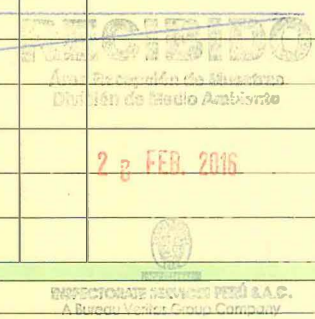 RECIBIDO
Área Recepción de Muestras
División de Medio Ambiente
FEB. 2016
INSPECTORATE SERVICES PERÚ S.A.C.
A Bureau Veritas Group Company